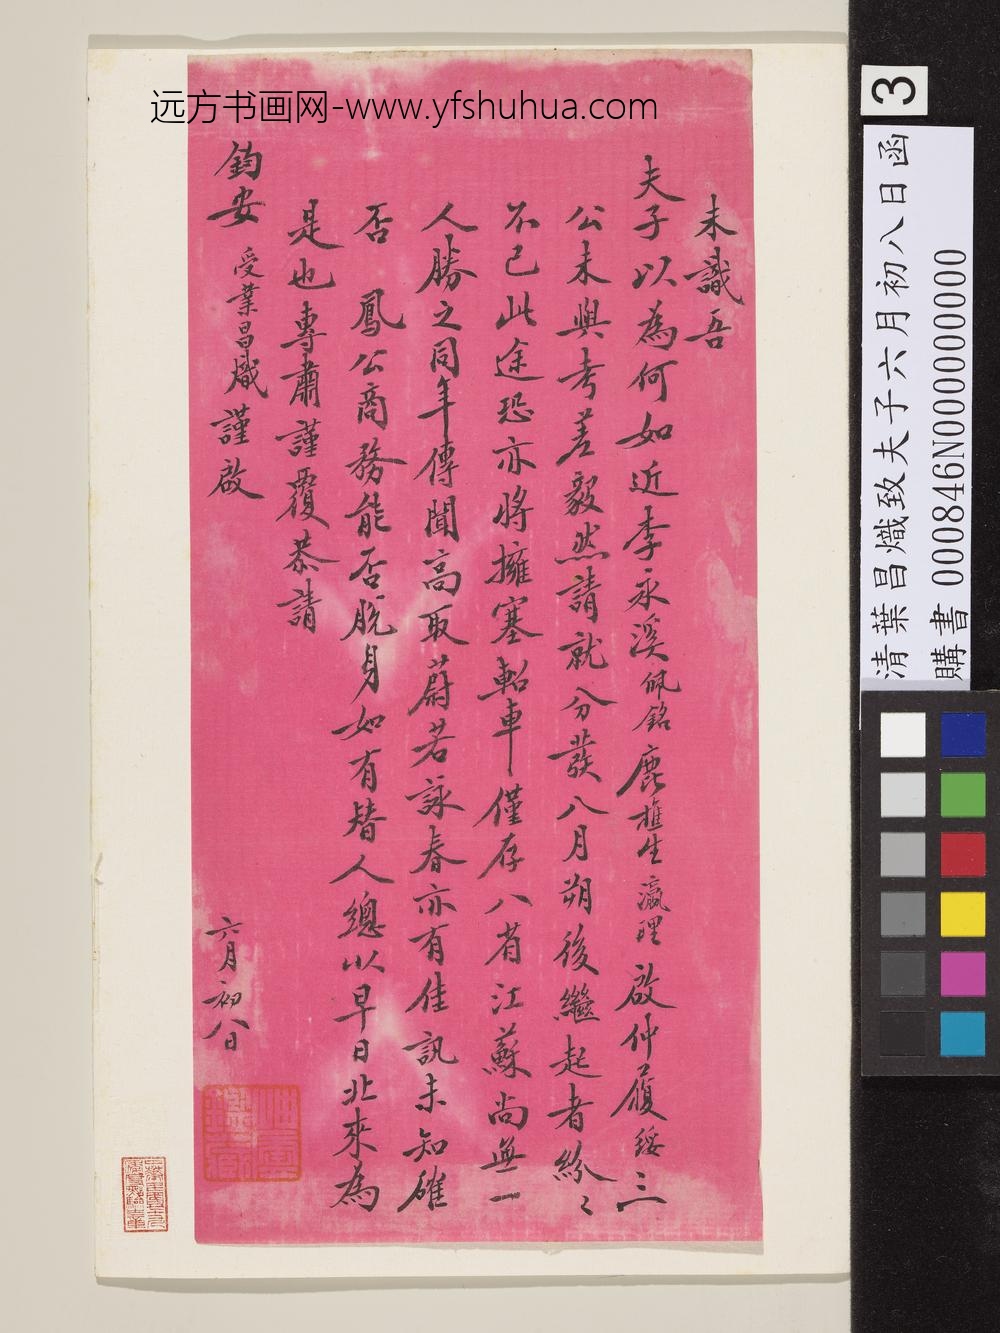 远方书画网-www.yfshuhua.com
未識吾
夫子以為何如近李永溪佩銘鹿樵生瀛理啟仲履綏三
公未與考差毅然請就分發八月朔後繼起者紛〻
不已此途恐亦將擁塞軺車僅存八省江蘇尚無一
人勝之同年傳聞高取蔚若詠春亦有佳訊未知確
否 鳳公商務能否脫身如有替人總以早日北來為
是也專肅謹覆恭請
鈞安 受業昌熾謹啟
六月初八日
3
清葉昌熾致夫子六月初八日函
購書 000846N000000000